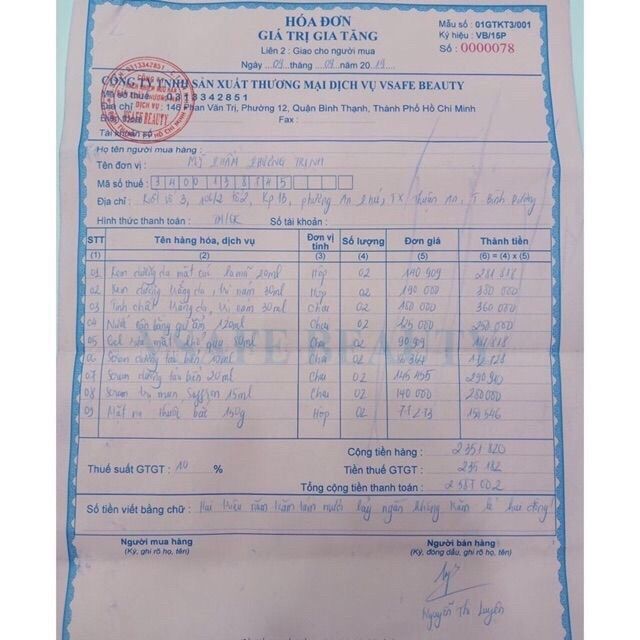 HÓA ĐƠN
GIÁ TRỊ GIA TĂNG
Liên 2 : Giao cho người mua
Ngày 09 tháng 09 năm 2019
Mẫu số : 01GTKT3/001
Ký hiệu : VB/15P
Số : 0000078
CÔNG TY TNHH SẢN XUẤT THƯƠNG MẠI DỊCH VỤ VSAFE BEAUTY
Mã số thuế : 0313342851
Địa chỉ : 146 Phan Văn Trị, Phường 12, Quận Bình Thạnh, Thành Phố Hồ Chí Minh
Điện thoại : Fax :
Tài khoản số :
DỊCH VỤ
VSAFE BEAUTY
Họ tên người mua hàng :
Tên đơn vị : MỸ PHẨM PHƯƠNG TRINH
Mã số thuế :
Địa chỉ : 3, KP1B, phường An Phú, TX Thuận An, T Bình Dương
Hình thức thanh toán : TM/CK Số tài khoản :
STT Tên hàng hóa, dịch vụ Đơn vị tính Số lượng Đơn giá Thành tiền
(1) (2) (3) (4) (5) (6) = (4) x (5)
01 Kem dưỡng da mặt 20ml Hộp 02 140 909 281 818
02 Kem dưỡng trắng da, trị nám 30ml Hộp 02 190 000 380 000
03 Tinh chất trắng da, trị nám 30ml Chai 02 180 000 360 000
04 Nước cân bằng giữ ẩm 120ml Chai 02 125 000 250 000
05 Gel rửa mặt 02 90 909
06 Serum dưỡng tảo biển 10ml Chai 02
07 Serum dưỡng tảo biển 20ml Chai 02 145 455 290 910
08 Serum trị mụn Saffron 15ml Chai 02 140 000 280 000
09 Mặt nạ thuốc bắc 150g Hộp 02 77 273 154 546
VSAFE BEAUTY
Cộng tiền hàng : 2 351 820
Thuế suất GTGT : 10 % Tiền thuế GTGT : 235 182
Tổng cộng tiền thanh toán : 2 587 002
Số tiền viết bằng chữ : Hai triệu năm trăm tám mươi bảy ngàn không trăm lẻ hai đồng
Người mua hàng Người bán hàng
(Ký, ghi rõ họ, tên) (Ký, đóng dấu, ghi rõ họ, tên)
Nguyễn Thị Luyến